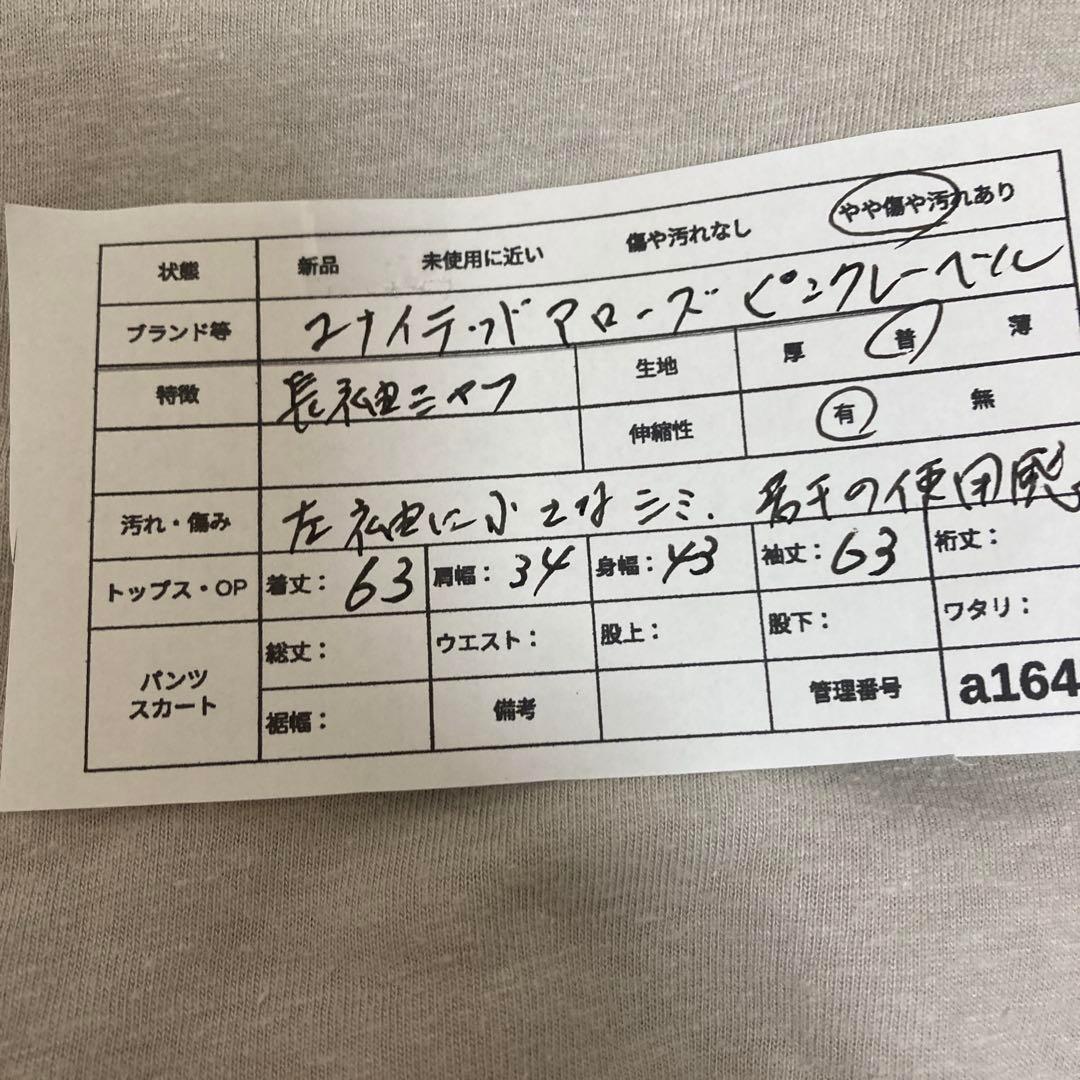 状態 新品 未使用に近い 傷や汚れなし やや傷や汚れあり
ブランド等 ユナイテッドアローズ ピンクレーベル
特徴 長袖シャツ 生地 厚 普 薄
伸縮性 有 無
汚れ・傷み 左袖に小さなシミ、若干の使用感
トップス・OP 着丈: 63 肩幅: 34 身幅: 43 袖丈: 63 裄丈:
パンツ スカート 総丈: ウエスト: 股上: 股下: ワタリ:
裾幅: 備考 管理番号 a164